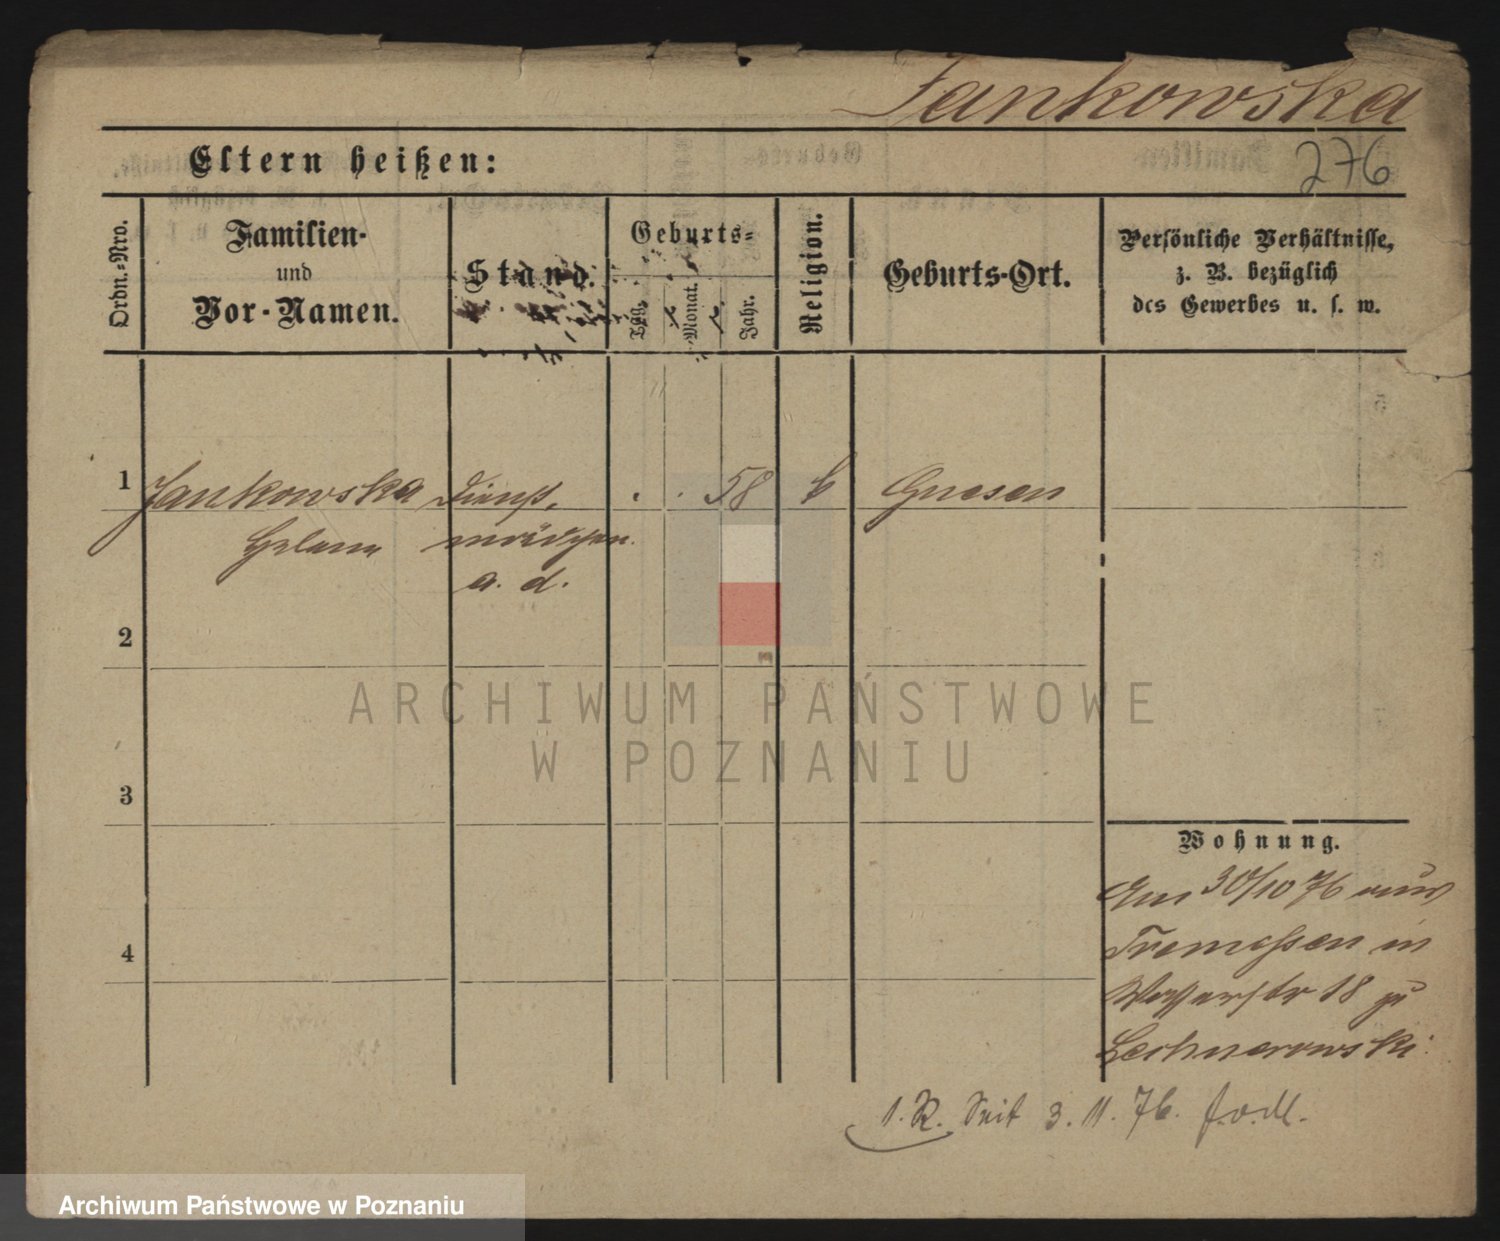 Jankowska
Eltern heißen:
276
Ordn.-Nro.
Familien-
und
Vor-Namen.
Stand.
Geburts-
Tag.
Monat.
Jahr.
Religion.
Geburts-Ort.
Persönliche Verhältnisse,
z. B. bezüglich
des Gewerbes u. s. w.
1
Jankowska
Dienst-
58
k
Gnesen
Helena
mädchen
a. d.
2
ARCHIWUM PAŃSTWOWE
W POZNANIU
3
Wohnung.
Am 30/10 76 aus
4
Tremessen in
Wasserstr 18 zu
Lechnerowski
1. R. Seit 3. 11. 76.
Archiwum Państwowe w Poznaniu